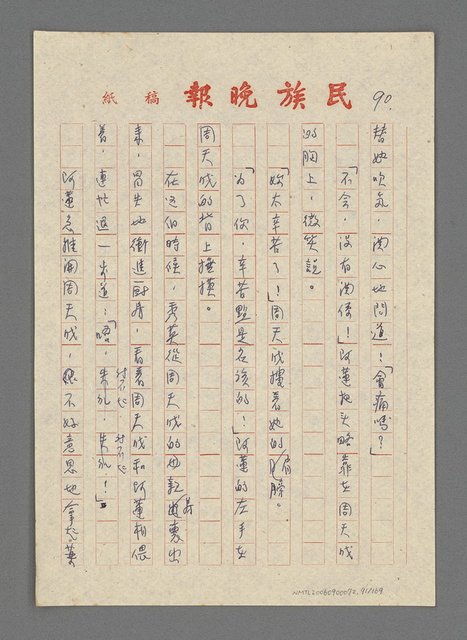 90.
民族晚報 稿紙
替她吹氣，關心地問道：「會痛嗎？」
「不会，没有関係！」阿蓮把头略靠在周天成
的胸上，微笑說。
「妳太辛苦了！」周天成摟着她的肩膀。
「为了你，辛苦點是应该的！」阿蓮的左手在
周天成的背上撫摸。
在这個時候，秀英從周天成的母親房裏出
来，冒失地衝進厨房，看着周天成和阿蓮相偎
着，連忙退一步道：「唔，失礼，失礼！」
对不起 对不起
阿蓮急推開周天成，很不好意思地拿起葉
NMTL20060900072, 91/169